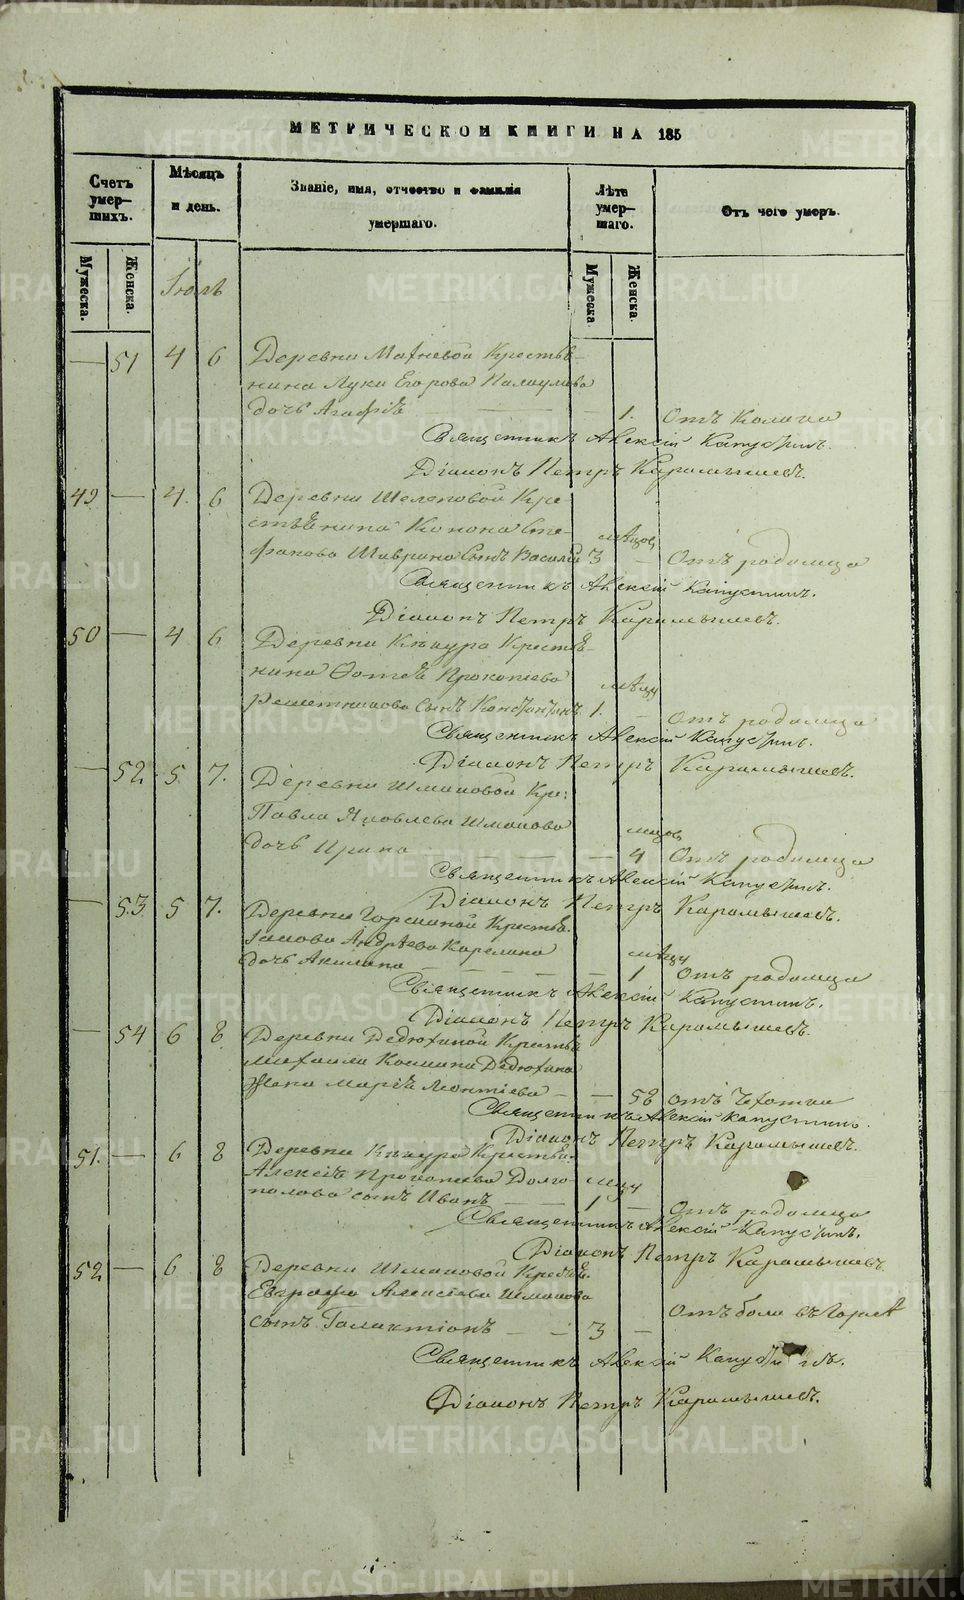 МЕТРИЧЕСКОЙ КНИГИ НА 185
Счетъ умер-шихъ.
Мѣсяцъ и день.
Званіе, имя, отчество и фамилія умершаго.
Лѣта умер-шаго.
Отъ чего умеръ.
Мужеска.
Женска.
Мужеска.
Женска.
Іюль
— 51 4 6 Деревни Махневой Крестья-
нина Луки Егорова
дочь Агафія — 1. Отъ
Священникъ Алексій Капустинъ.
Діаконъ Петръ Карамышевъ.
49 — 4. 6 Деревни Шелеповой Кре
стьянина Конона Сте-
фанова Шаврина Сынъ Василій мѣсяцов 3 — Отъ родимца
Священникъ Алексій Капустинъ.
Діаконъ Петръ Карамышевъ.
50 — 4 6 Деревни Кѣнура Крестья-
нина Фотея Прокопьева мѣсяц
Решетникова Сынъ Константинъ 1. — Отъ родимца
Священникъ Алексій Капустинъ.
Діаконъ Петръ Карамышевъ.
— 52 5 7. Деревни Шмаковой Кре:
Павла Яковлева Шмакова
дочь Ирина — 4 Отъ родимца
Священникъ Алексій Капустинъ.
Діаконъ Петръ Карамышевъ.
— 53 5 7. Деревни Горскиной Крестья.
Іакова Андреева Карелина
дочь Акилина — 1 Отъ родимца
Священникъ Алексій Капустинъ.
Діаконъ Петръ Карамышевъ.
— 54 6 8 Деревни Дедюхиной Крестья
Михаила Космина Дедюхина
Жена Марія Леонтіева — — 58 отъ Чахотки
Священникъ Алексій Капустинъ.
Діаконъ Петръ Карамышевъ.
51. — 6 8 Деревни Кѣнура Крестья:
Алексія Прокопьева Долго-
полова сынъ Иванъ — 1 — Отъ родимца
Священникъ Алексій Капустинъ.
Діаконъ Петръ Карамышевъ
52 — 6 8 Деревни Шмаковой Крестья.
Евграфа Алексѣева Шмакова
сынъ Галактіонъ — — 3 — Отъ боли въ Горлѣ
Священникъ Алексій Капустинъ.
Діаконъ Петръ Карамышевъ.
METRIKI.GASO-URAL.RU